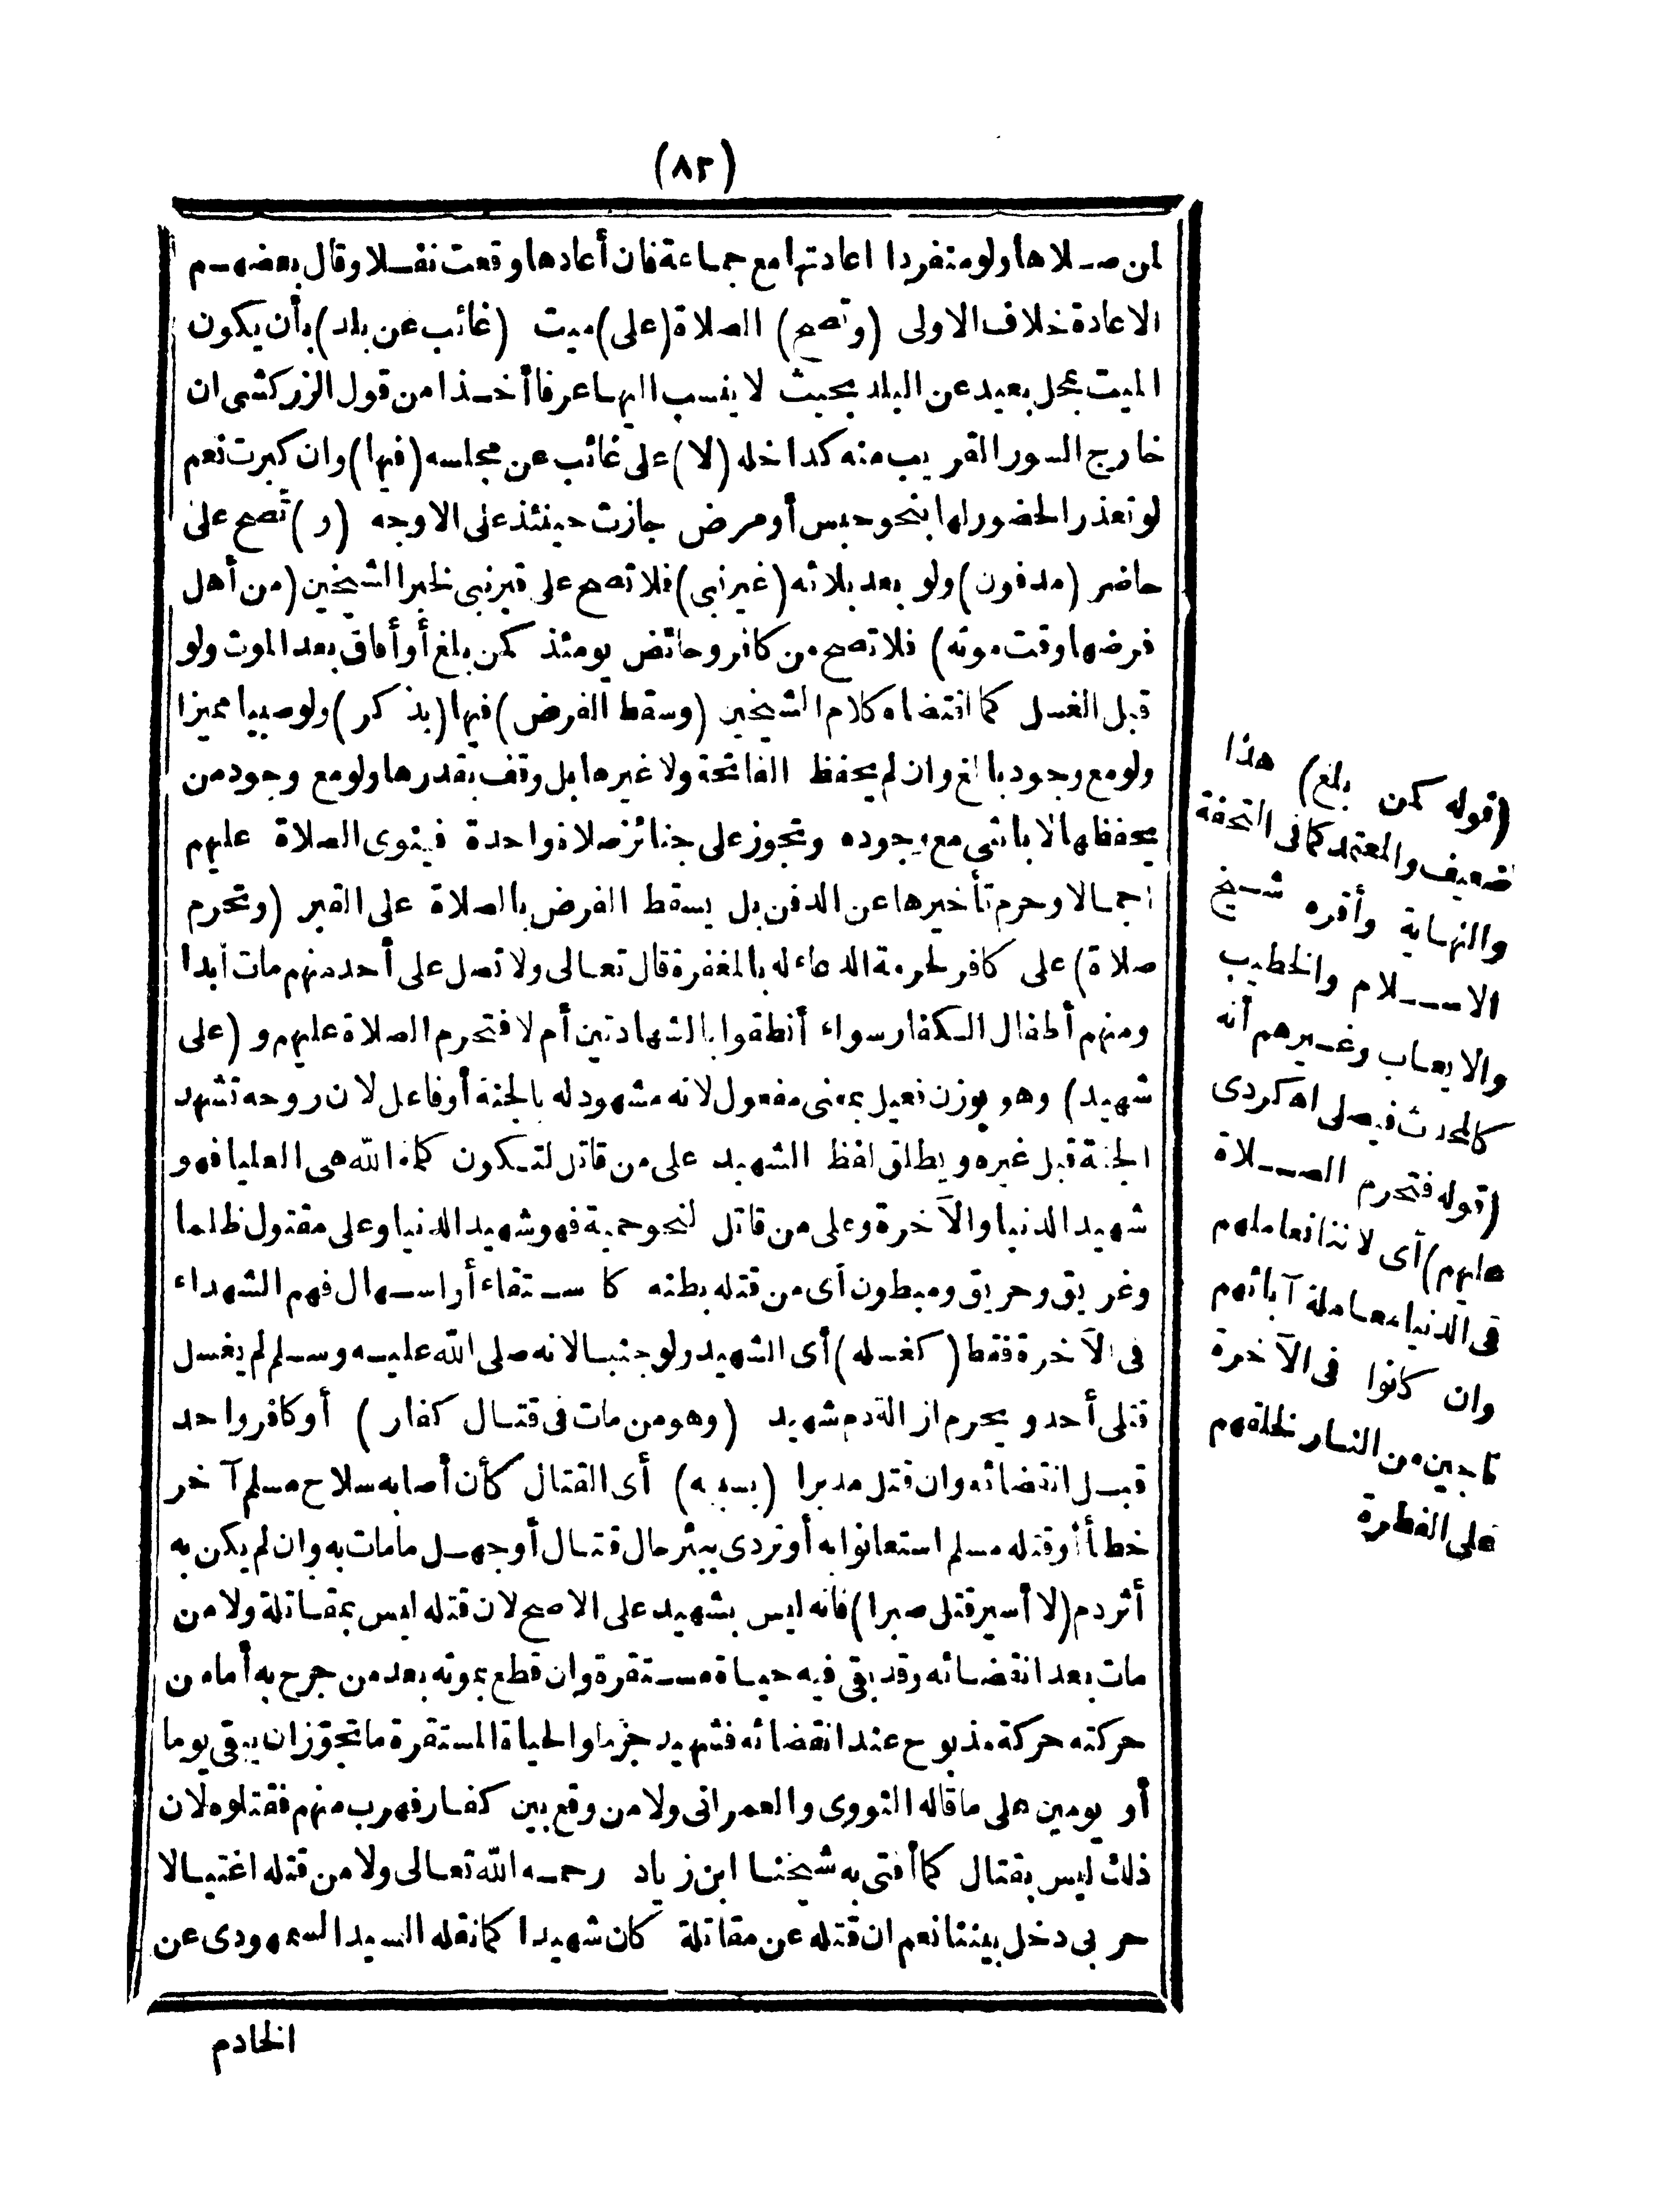 (٨٢)
لمن صلاها ولو منفردا اعادتها مع جماعة فان أعادها وقعت نفلا وقال بعضهم
الاعادة خلاف الاولى (وتصح) الصلاة (على) ميت (غائب عن بلد) بأن يكون
الميت بمحل بعيد عن البلد بحيث لا ينسب اليها عرفا أخذا من قول الزركشى ان
خارج السور القريب منه كداخله (لا) على غائب عن مجلسه (فيها) وان كبرت نعم
لو تعذر الحضور لها بنحو حبس أو مرض جازت حينئذ على الاوجه (و) تصح على
حاضر (مدفون) ولو بعد بلائه (غير نبى) فلا تصح على قبر نبى لخبر الشيخين (من أهل
فرضها وقت موته) فلا تصح من كافر وحائض يومئذ كمن بلغ أو أفاق بعد الموت ولو
قبل الغسل كما اقتضاه كلام الشيخين (وسقط الفرض) فيها (بذكر) ولو صبيا مميزا
ولو مع وجود بالغ وان لم يحفظ الفاتحة ولا غيرها بل وقف بقدرها ولو مع وجود من
يحفظها لا بانثى مع وجوده وتجوز على جنائز صلاة واحدة فينوى الصلاة عليهم
اجمالا وحرم تأخيرها عن الدفن بل يسقط الفرض بالصلاة على القبر (وتحرم
صلاة) على كافر لحرمة الدعاء له بالمغفرة قال تعالى ولا تصل على أحد منهم مات أبدا
ومنهم أطفال الكفار سواء أنطقوا بالشهادتين أم لا فتحرم الصلاة عليهم و (على
شهيد) وهو بوزن فعيل بمعنى مفعول لانه مشهود له بالجنة أو فاعل لان روحه تشهد
الجنة قبل غيره ويطلق لفظ الشهيد على من قاتل لتكون كلمة الله هى العليا فهو
شهيد الدنيا والآخرة وعلى من قاتل لنحو حمية فهو شهيد الدنيا وعلى مقتول ظلما
وغريق وحريق ومبطون أى من قتله بطنه كاستسقاء أو اسهال فهم الشهداء
فى الآخرة فقط (كغسله) أى الشهيد ولو جنبا لانه صلى الله عليه وسلم لم يغسل
قتلى أحد ويحرم ازالة دم شهيد (وهو من مات فى قتال كفار) أو كافر واحد
قبل انقضائه وان قتل مدبرا (بسببه) أى القتال كأن أصابه سلاح مسلم آخر
خطأ أو قتله مسلم استعانوا به أو تردى ببئر حال قتال أو جهل ما مات به وان لم يكن به
أثر دم (لا أسير قتل صبرا) فانه ليس بشهيد على الاصح لان قتله ليس بمقاتلة ولا من
مات بعد انقضائه وقد بقى فيه حياة مستقرة وان قطع بموته بعد من جرح به أما من
حركته حركة مذبوح عند انقضائه فشهيد جزما والحياة المستقرة ما تجوّز ان يبقى يوما
أو يومين على ما قاله النووى والعمرانى ولا من وقع بين كفار فهرب منهم فقتلوه لان
ذلك ليس بقتال كما أفتى به شيخنا ابن زياد رحمه الله تعالى ولا من قتله اغتيالا
حربى دخل بيننا نعم ان قتله عن مقاتلة كان شهيدا كما نقله السيد السمهودى عن
الخادم
(قوله كمن بلغ) هذا
ضعيف والمعتمد كما فى التحفة
والنهاية وأقره شيخ
الاسلام والخطيب
والايعاب وغيرهم أنه
كالمحدث فيصلى اه كردى
(قوله فتحرم الصلاة
عليهم) أى لاننا نعاملهم
فى الدنيا معاملة آبائهم
وان كانوا فى الآخرة
ناجين من النار لخلقهم
على الفطرة